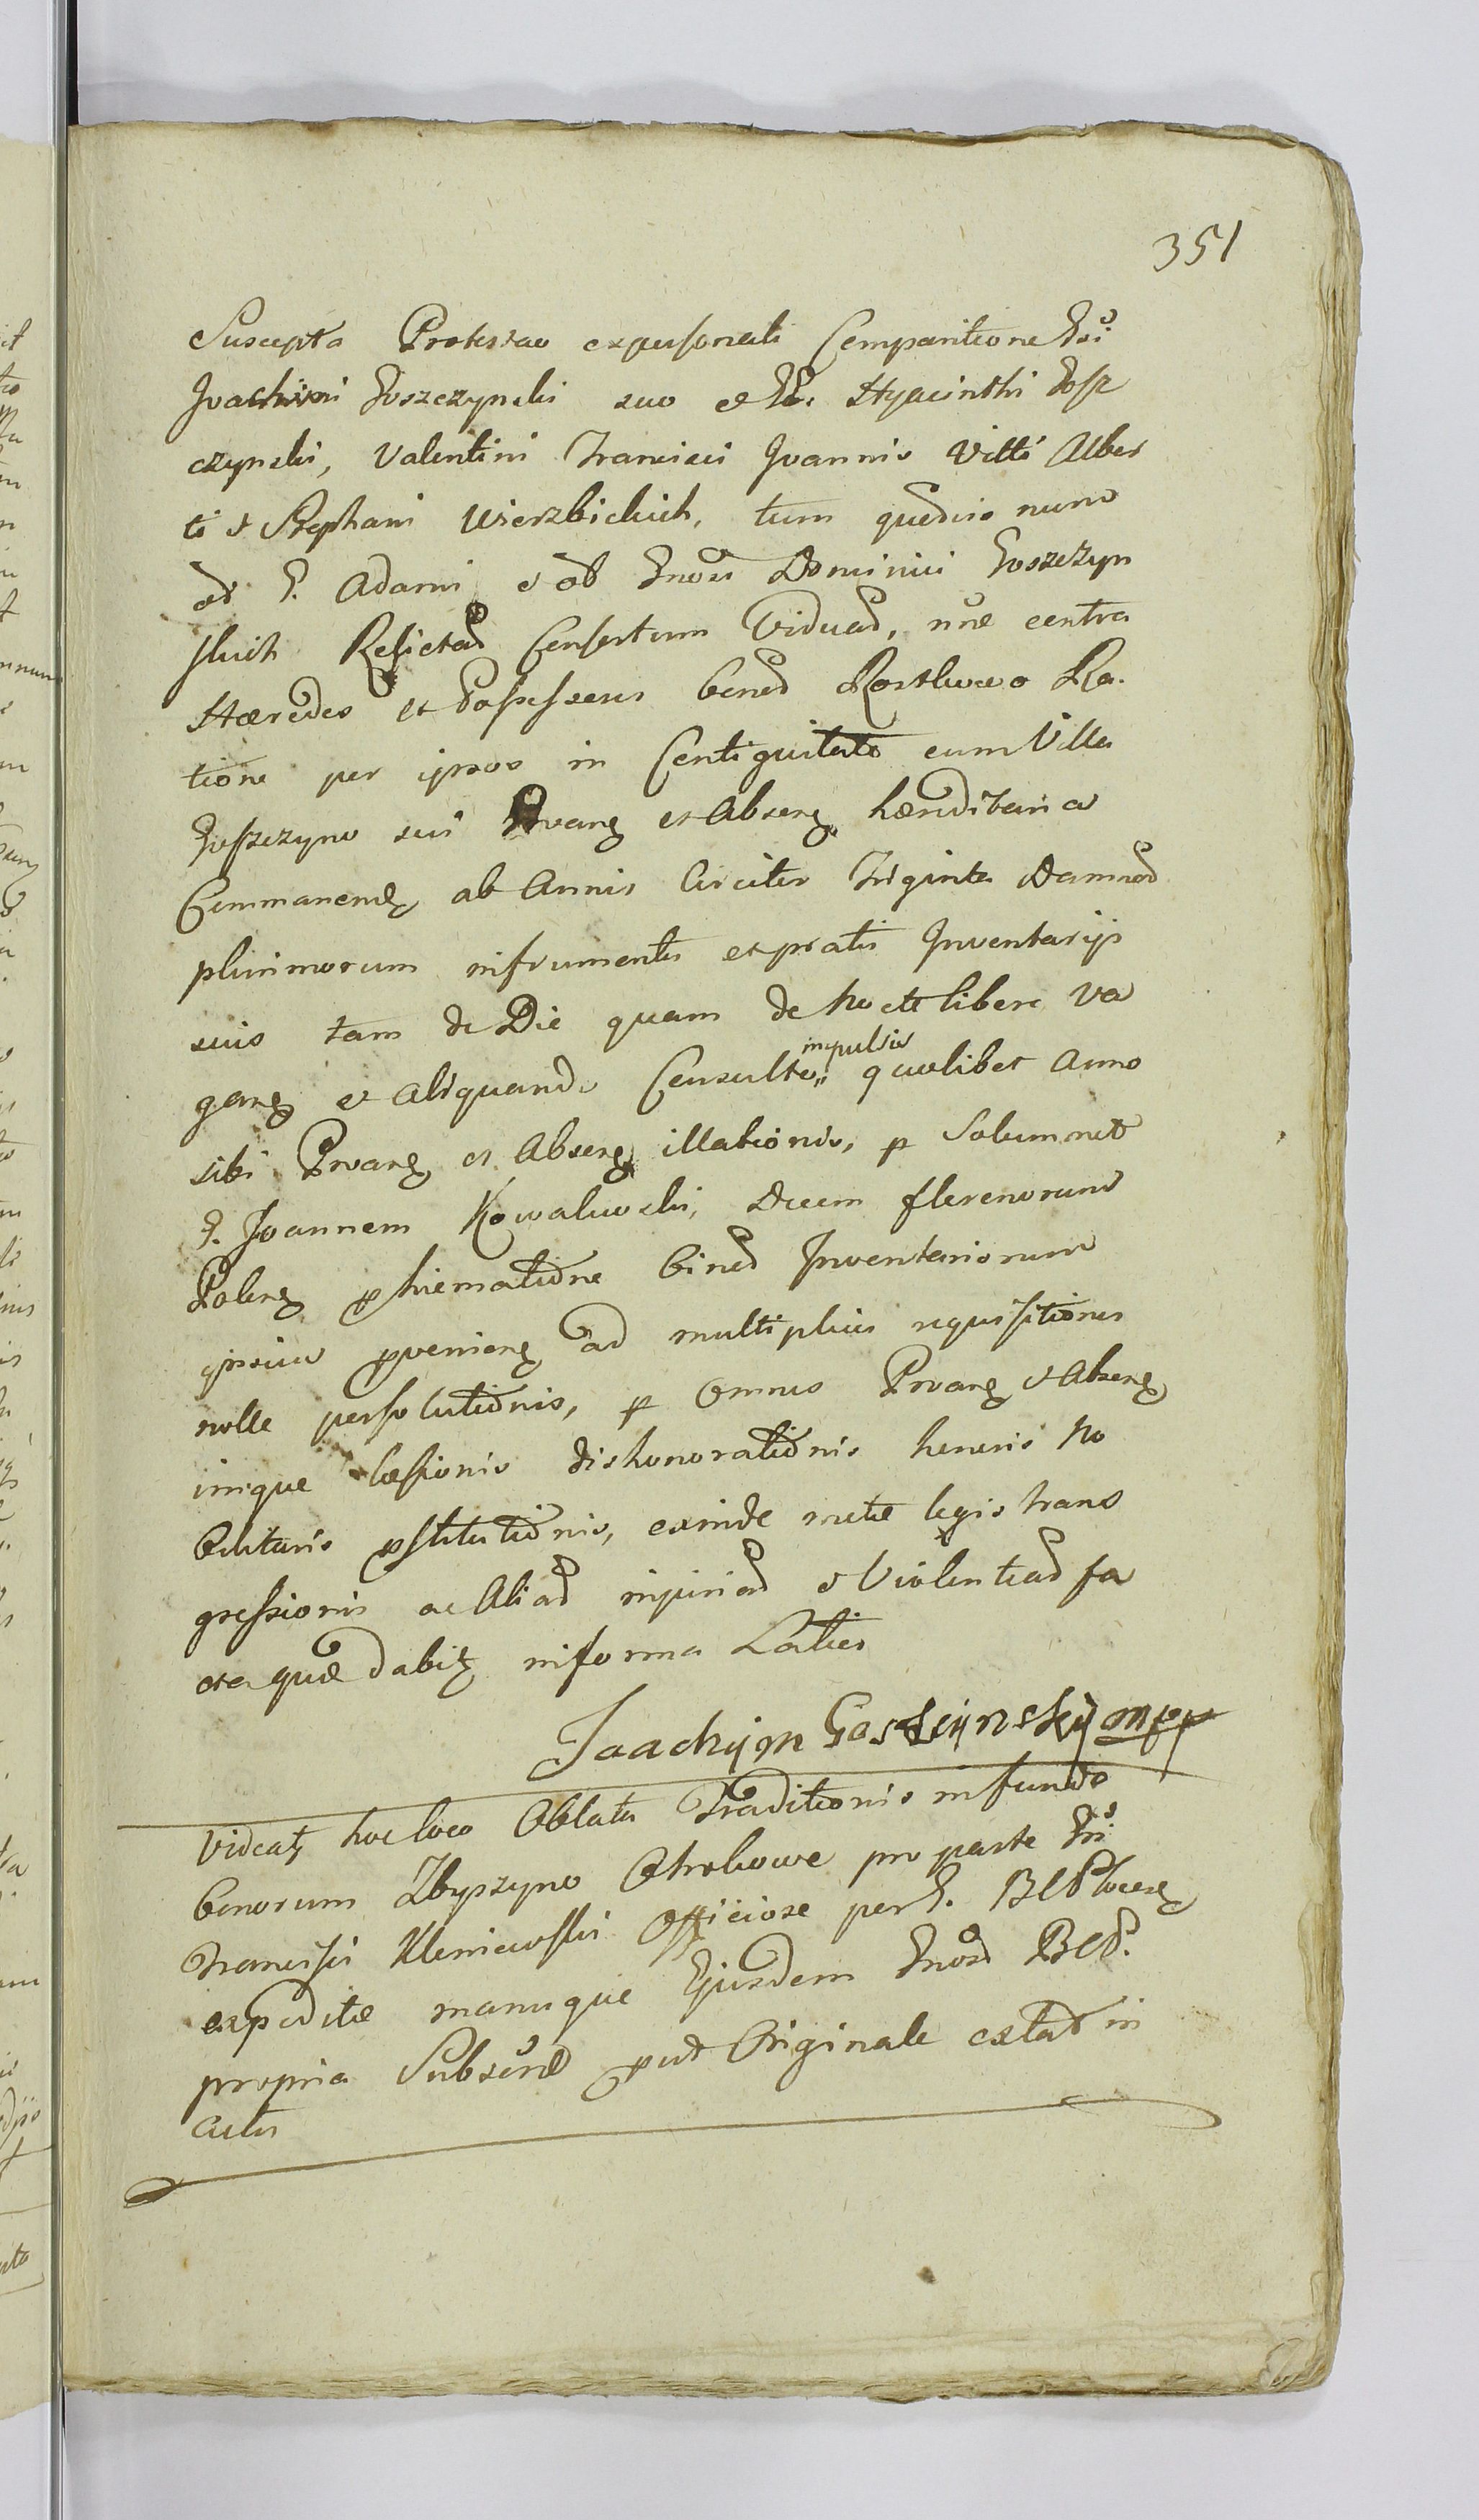 351
Suscepta Protestao ex personali Comparitione Gsi
Joachimi Goszczynski suo et GG. Hyacinthi Gosz
czynski, Valentini Francisci Joannis Vitti Alber
ti & Stephani Wierzbickich, tum
G. Adami & Dominici Goszczyn
skich Relictad Consortum Viduad, nõe contra
Hæredes et Possessores bonod Rostkowo Ra
tione per ipsos in Contiguitate cum Villa
Goszczyno sui Prvang et Abseng hæreditaria
Commanend ab Annis Circiter Triginta Damnod
plurimorum in frumentis et pratis Inventarijs
suis tam de Die quam de nocte libere va
gang et Aliquando Consulto,, impulsis quolibet Anno
sibi Prvang et Abseng illationis, p Solum neto
G. Joannem Kowalewski, Decem florenorum
Polong p hiematione binod Inventariorum
ipsius pvenieng ad multiplices requisitiones
nolle persolutionis, p Omnes Prvang & Abseng
inique læsionis dishonorationis honoris No
bilitaris pstitutionis, exinde metæ legis trans
gressionis ac Aliad injuriad & Violentiad fa
ctaque dabit in forma Latior
Joachijm Goszczijnskij mpp
Videatz hoc loco Oblata Traditionis in fundo
bonorum Zbyszyno Olrekowe pro parte Gsi
Francisci Kleniewski Officiose per G. BCS Plocens
expeditæ manuque Ejusdem Gnosd BCS.
propria Subscræ put Originale extat in
Actis